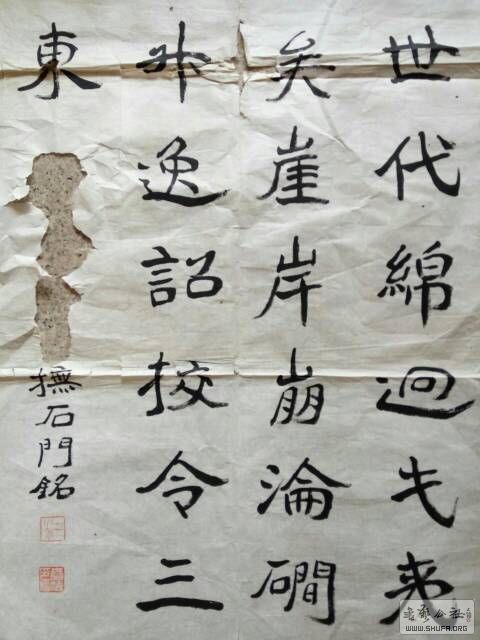 世代綿迴夷
矣崖岸崩淪磵
逸詔挍令三
東
撫石門銘
書法公社
WWW.SHUFA.ORG